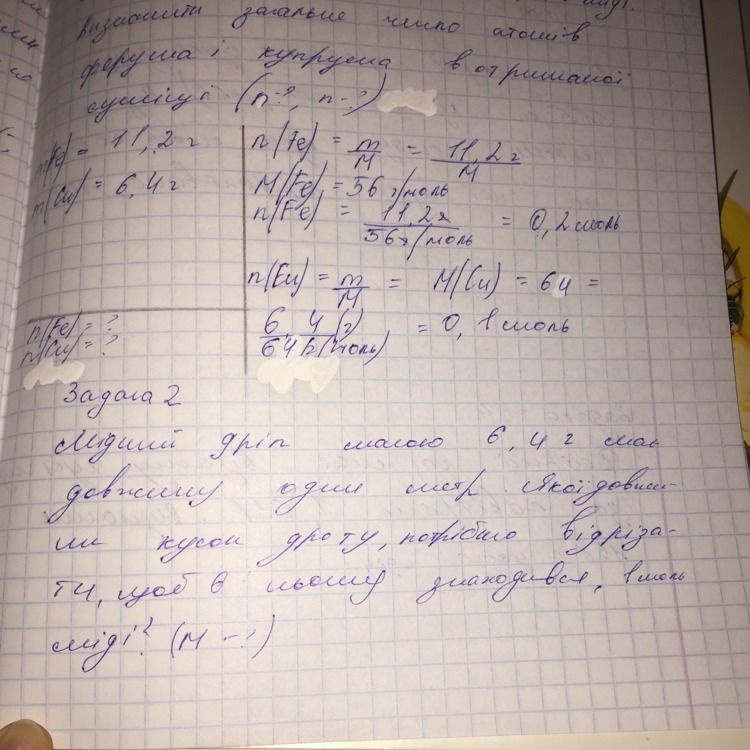 визначити загальне число атомів
ферума і купрума в отриманої
суміші (n-?, n-?)
m(Fe) = 11,2 г
m(Cu) = 6,4 г
n(Fe) = ?
n(Cu) = ?
n(Fe) = m/M = 11,2 г/M
M(Fe) = 56 г/моль
n(Fe) = 11,2г/56г/моль = 0,2 моль
n(Cu) = m/M = M(Cu) = 64 =
6,4(г)/64 г(моль) = 0,1 моль
Задача 2
Мідний дріт масою 6,4 г має
довжину один метр Якої довжи-
ни кусок дроту, потрібно відріза-
ти, щоб в ньому знаходився, 1 моль
міді? (M -?)